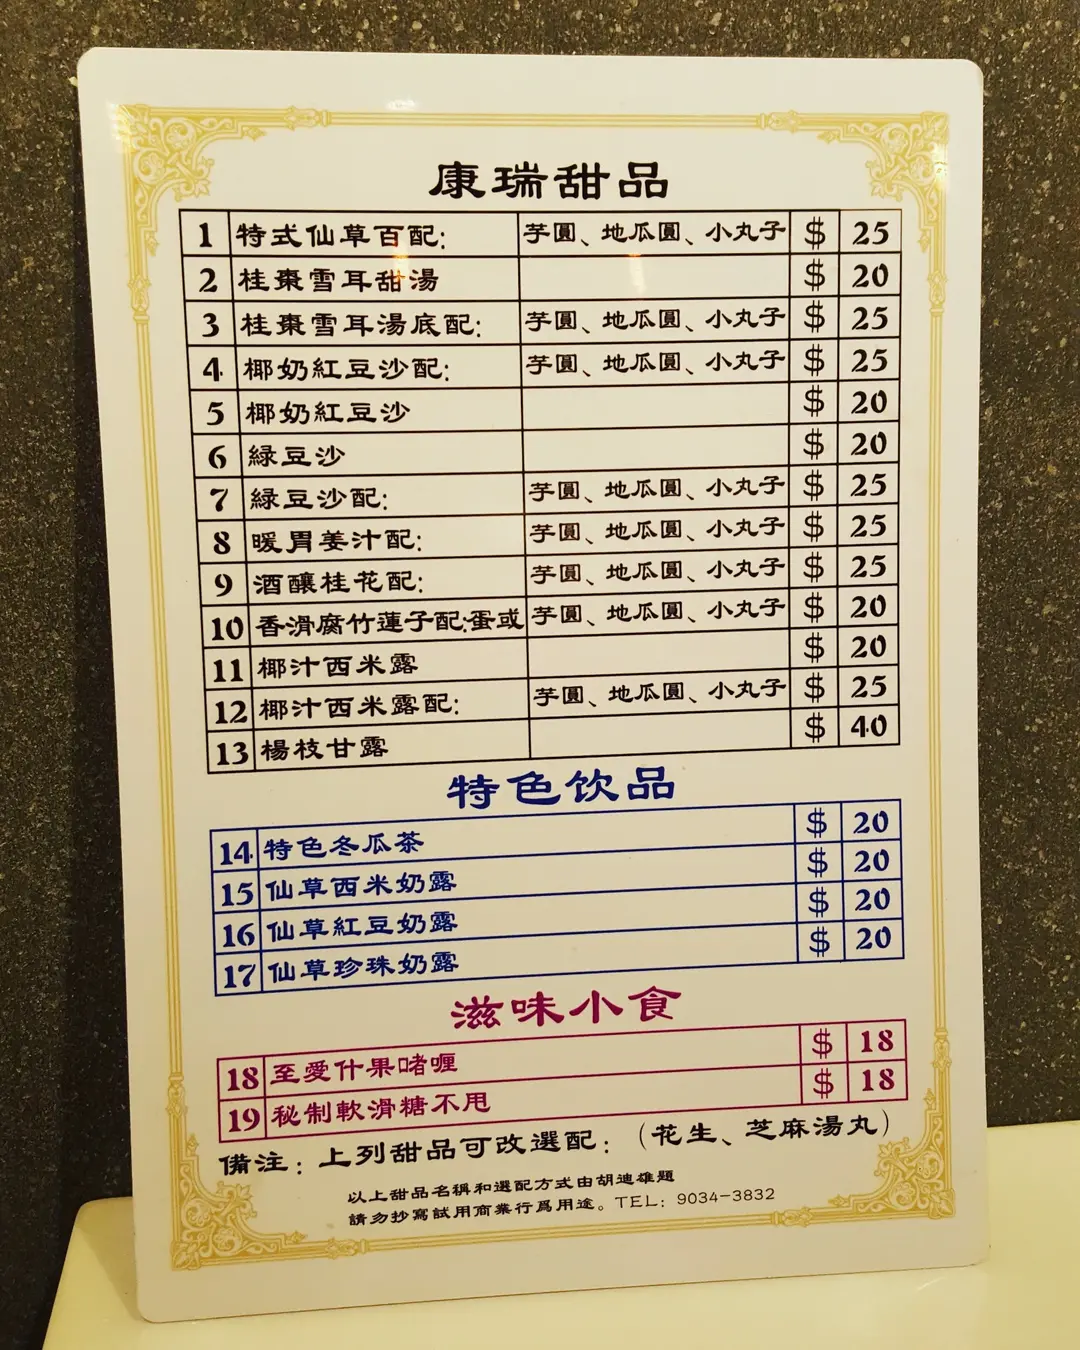 康瑞甜品
1 特式仙草百配: 芋圓、地瓜圓、小丸子 $ 25
2 桂棗雪耳甜湯 $ 20
3 桂棗雪耳湯底配: 芋圓、地瓜圓、小丸子 $ 25
4 椰奶紅豆沙配: 芋圓、地瓜圓、小丸子 $ 25
5 椰奶紅豆沙 $ 20
6 綠豆沙 $ 20
7 綠豆沙配: 芋圓、地瓜圓、小丸子 $ 25
8 暖胃姜汁配: 芋圓、地瓜圓、小丸子 $ 25
9 酒釀桂花配: 芋圓、地瓜圓、小丸子 $ 25
10 香滑腐竹蓮子配:蛋或 芋圓、地瓜圓、小丸子 $ 20
11 椰汁西米露 $ 20
12 椰汁西米露配: 芋圓、地瓜圓、小丸子 $ 25
13 楊枝甘露 $ 40
特色饮品
14 特色冬瓜茶 $ 20
15 仙草西米奶露 $ 20
16 仙草紅豆奶露 $ 20
17 仙草珍珠奶露 $ 20
滋味小食
18 至愛什果啫喱 $ 18
19 秘制軟滑糖不甩 $ 18
備注：上列甜品可改選配：（花生、芝麻湯丸）
以上甜品名稱和選配方式由胡迪雄題
請勿抄寫試用商業行爲用途。TEL：9034-3832